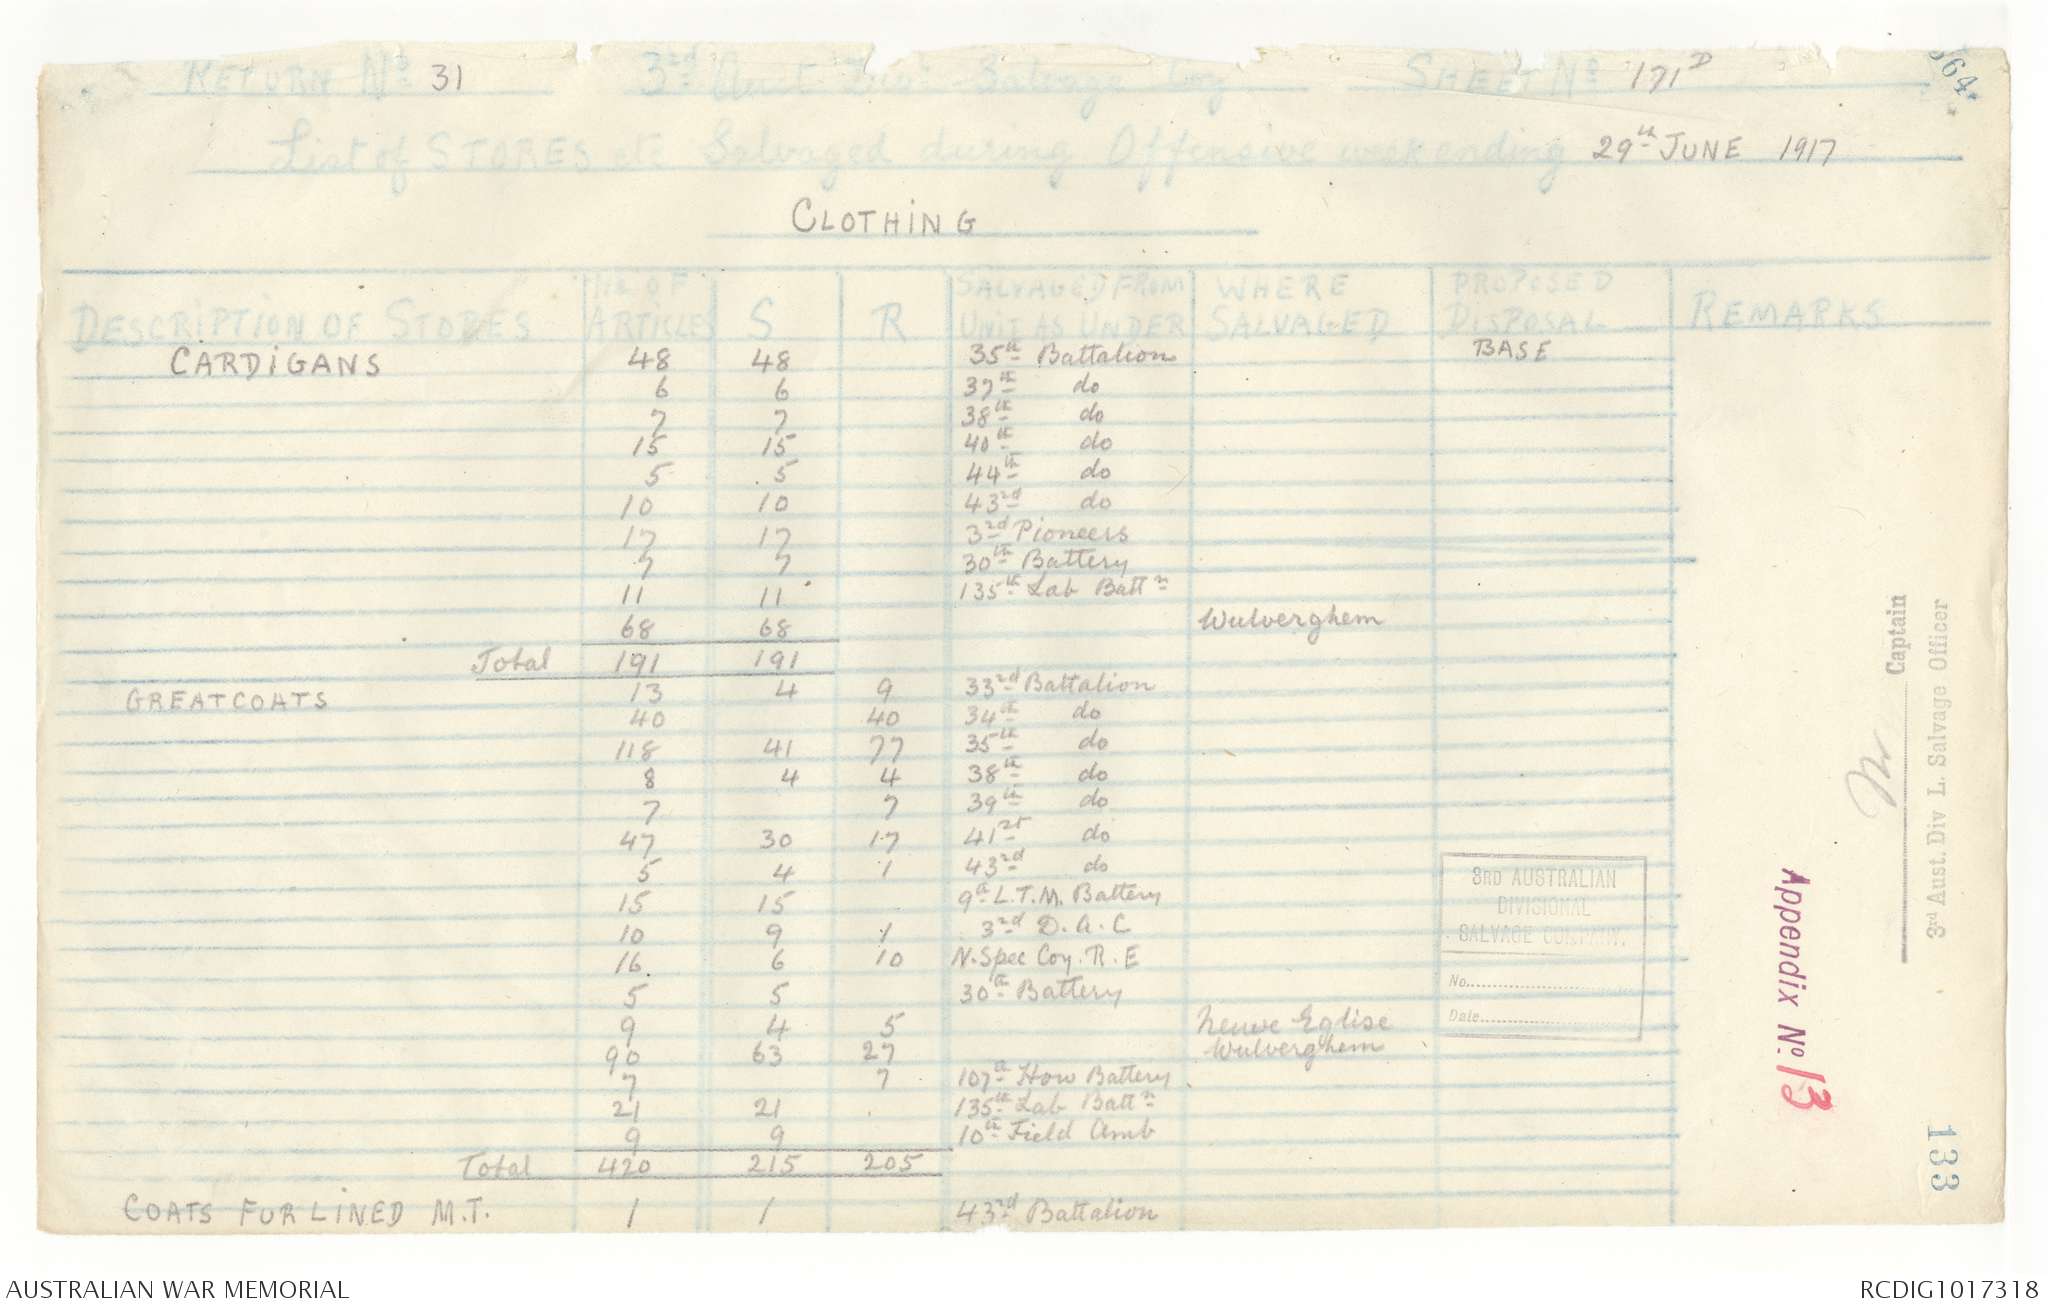 RETURN No 31 3rd Aust. Divl Salvage Coy SHEET No 171D
List of STORES etc Salvaged during Offensive week ending 29th JUNE 1917
CLOTHING
DESCRIPTION OF STORES No OF ARTICLES S R SALVAGED FROM UNIT AS UNDER WHERE SALVAGED PROPOSED DISPOSAL REMARKS
CARDIGANS 48 48 35th Battalion BASE
6 6 37th do
7 7 38th do
15 15 40th do
5 5 44th do
10 10 43rd do
17 17 3rd Pioneers
7 7 30th Battery
11 11 135th Lab Battn
68 68 Wulverghem
Total 191 191
GREATCOATS 13 4 9 33rd Battalion
40 40 34th do
118 41 77 35th do
8 4 4 38th do
7 7 39th do
47 30 17 41st do
5 4 1 43rd do
15 15 9th L.T.M. Battery
10 9 1 3rd D.A.C
16 6 10 N. Spec Coy. R.E
5 5 30th Battery
9 4 5 Neuve Eglise
90 63 27 Wulverghem
7 7 107th How Battery
21 21 135th Lab Battn
9 9 10th Field Amb
Total 420 215 205
COATS FUR LINED M.T. 1 1 43rd Battalion
3RD AUSTRALIAN
DIVISIONAL
SALVAGE COMPANY.
No.
Date
Appendix No. 13
Captain
3rd Aust. Div L. Salvage Officer
133
364.
AUSTRALIAN WAR MEMORIAL RCDIG1017318